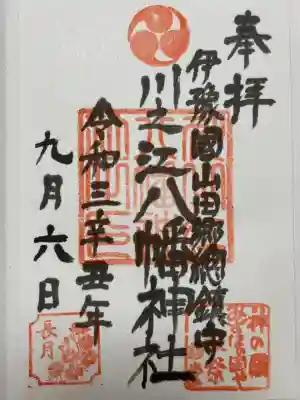 奉拝
伊豫國山田郷総鎮守
川之江八幡神社
令和三辛丑年
九月六日
長月